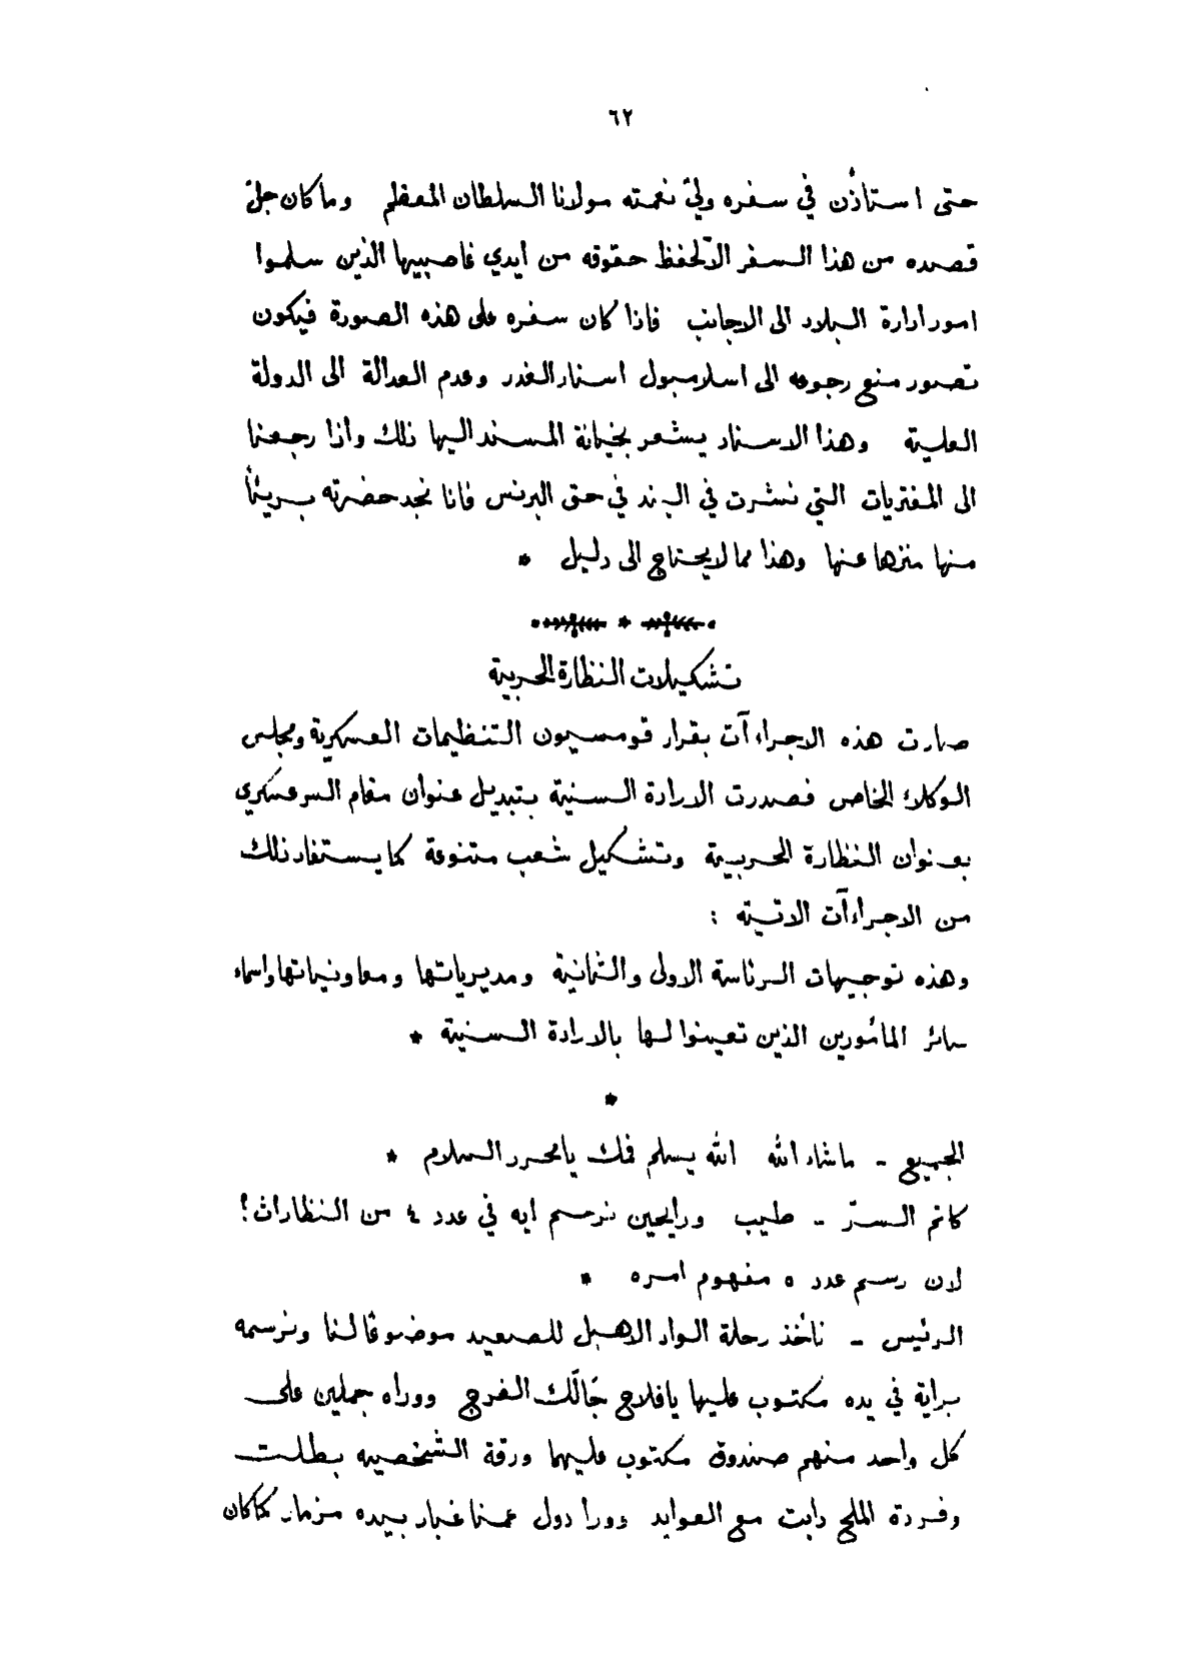 ٦٢
حتى استاذن في سفره وليّ نعمته مولانا السلطان المعظم وما كان جلّ
قصده من هذا السفر الّا لحفظ حقوقه من ايدي غاصبيها الذين سلموا
امور ادارة البلاد الى الاجانب فاذا كان سفره على هذه الصورة فيكون
تصور منع رجوعه الى اسلامبول اسناد الغدر وعدم العدالة الى الدولة
العلية وهذا الاسناد يشعر بخيانة المسند اليها ذلك واذا رجعنا
الى المفتريات التي نشرت في البند في حق البرنس فانا نجد حضرته بريئاً
منها منزها عنها وهذا مما لا يحتاج الى دليل *
*
تشكيلات النظارة الحربية
صارت هذه الاجراءآت بقرار قومسيون التنظيمات العسكرية ومجلس
الوكلاء الخاص فصدرت الارادة السنية بتبديل عنوان مقام السرعسكري
بعنوان النظارة الحربية وتشكيل شعب متنوعة كما يستفاد ذلك
من الاجراءآت الاتية :
وهذه توجيهات الرئاسة الاولى والثمانية ومديرياتها ومعاونياتها واسماء
سائر المأمورين الذين تعينوا لها بالارادة السنية *
*
الجميع - ماشاء الله الله يسلم فمك يا محرر السلام *
كاتم السرّ - طيب ورايحين نرسم ايه في عدد ٤ من النظارات؟
لان رسم عدد ٥ مفهوم امره *
الرئيس - نأخذ رحلة الواد الاهبل للصعيد موضوعًا لنا ونرسمه
براية في يده مكتوب عليها يا فلاح جَالَك الفرج ووراه جملين على
كل واحد منهم صندوق مكتوب عليهما ورقة الشخصيه بطلت
وفردة الملح رابت مع العوايد وورا دول عمنا غبار بيده مزمار كما كان